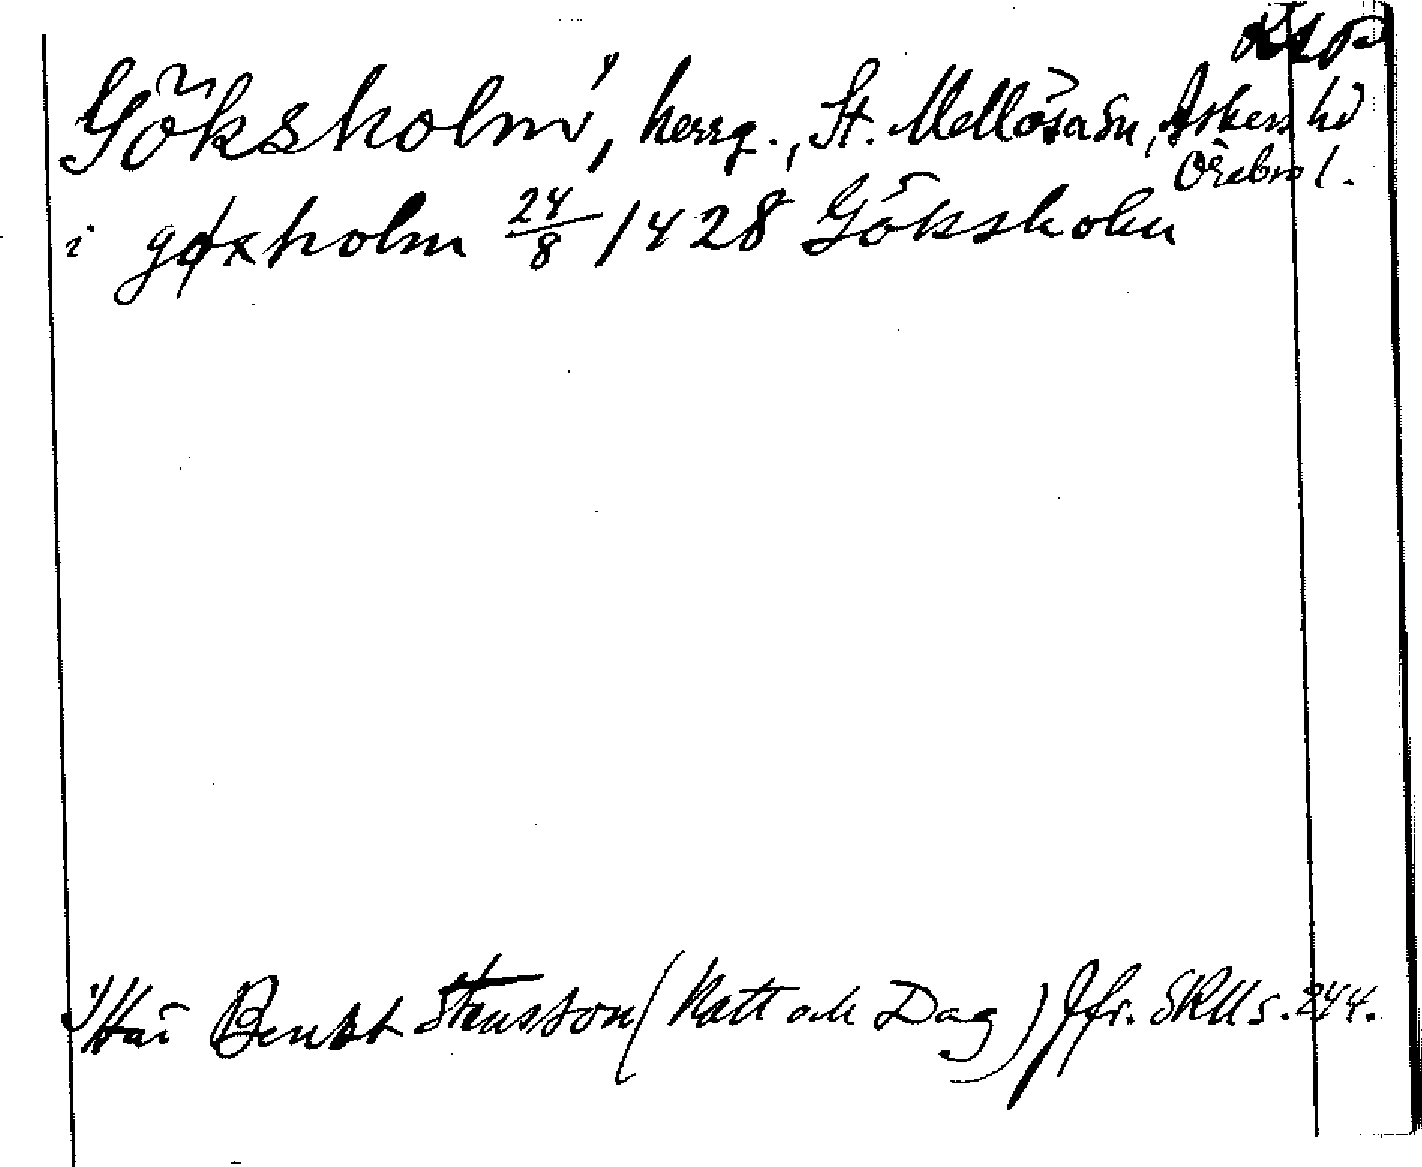 Göksholm¹⁾, herrg., St. Mellösa sn, Askers hd
Örebro l.
i gøxholm 24/8 1428 Göksholm
¹⁾ Här Benkt Stensson (Natt och Dag) Jfr. SRM s. 244.